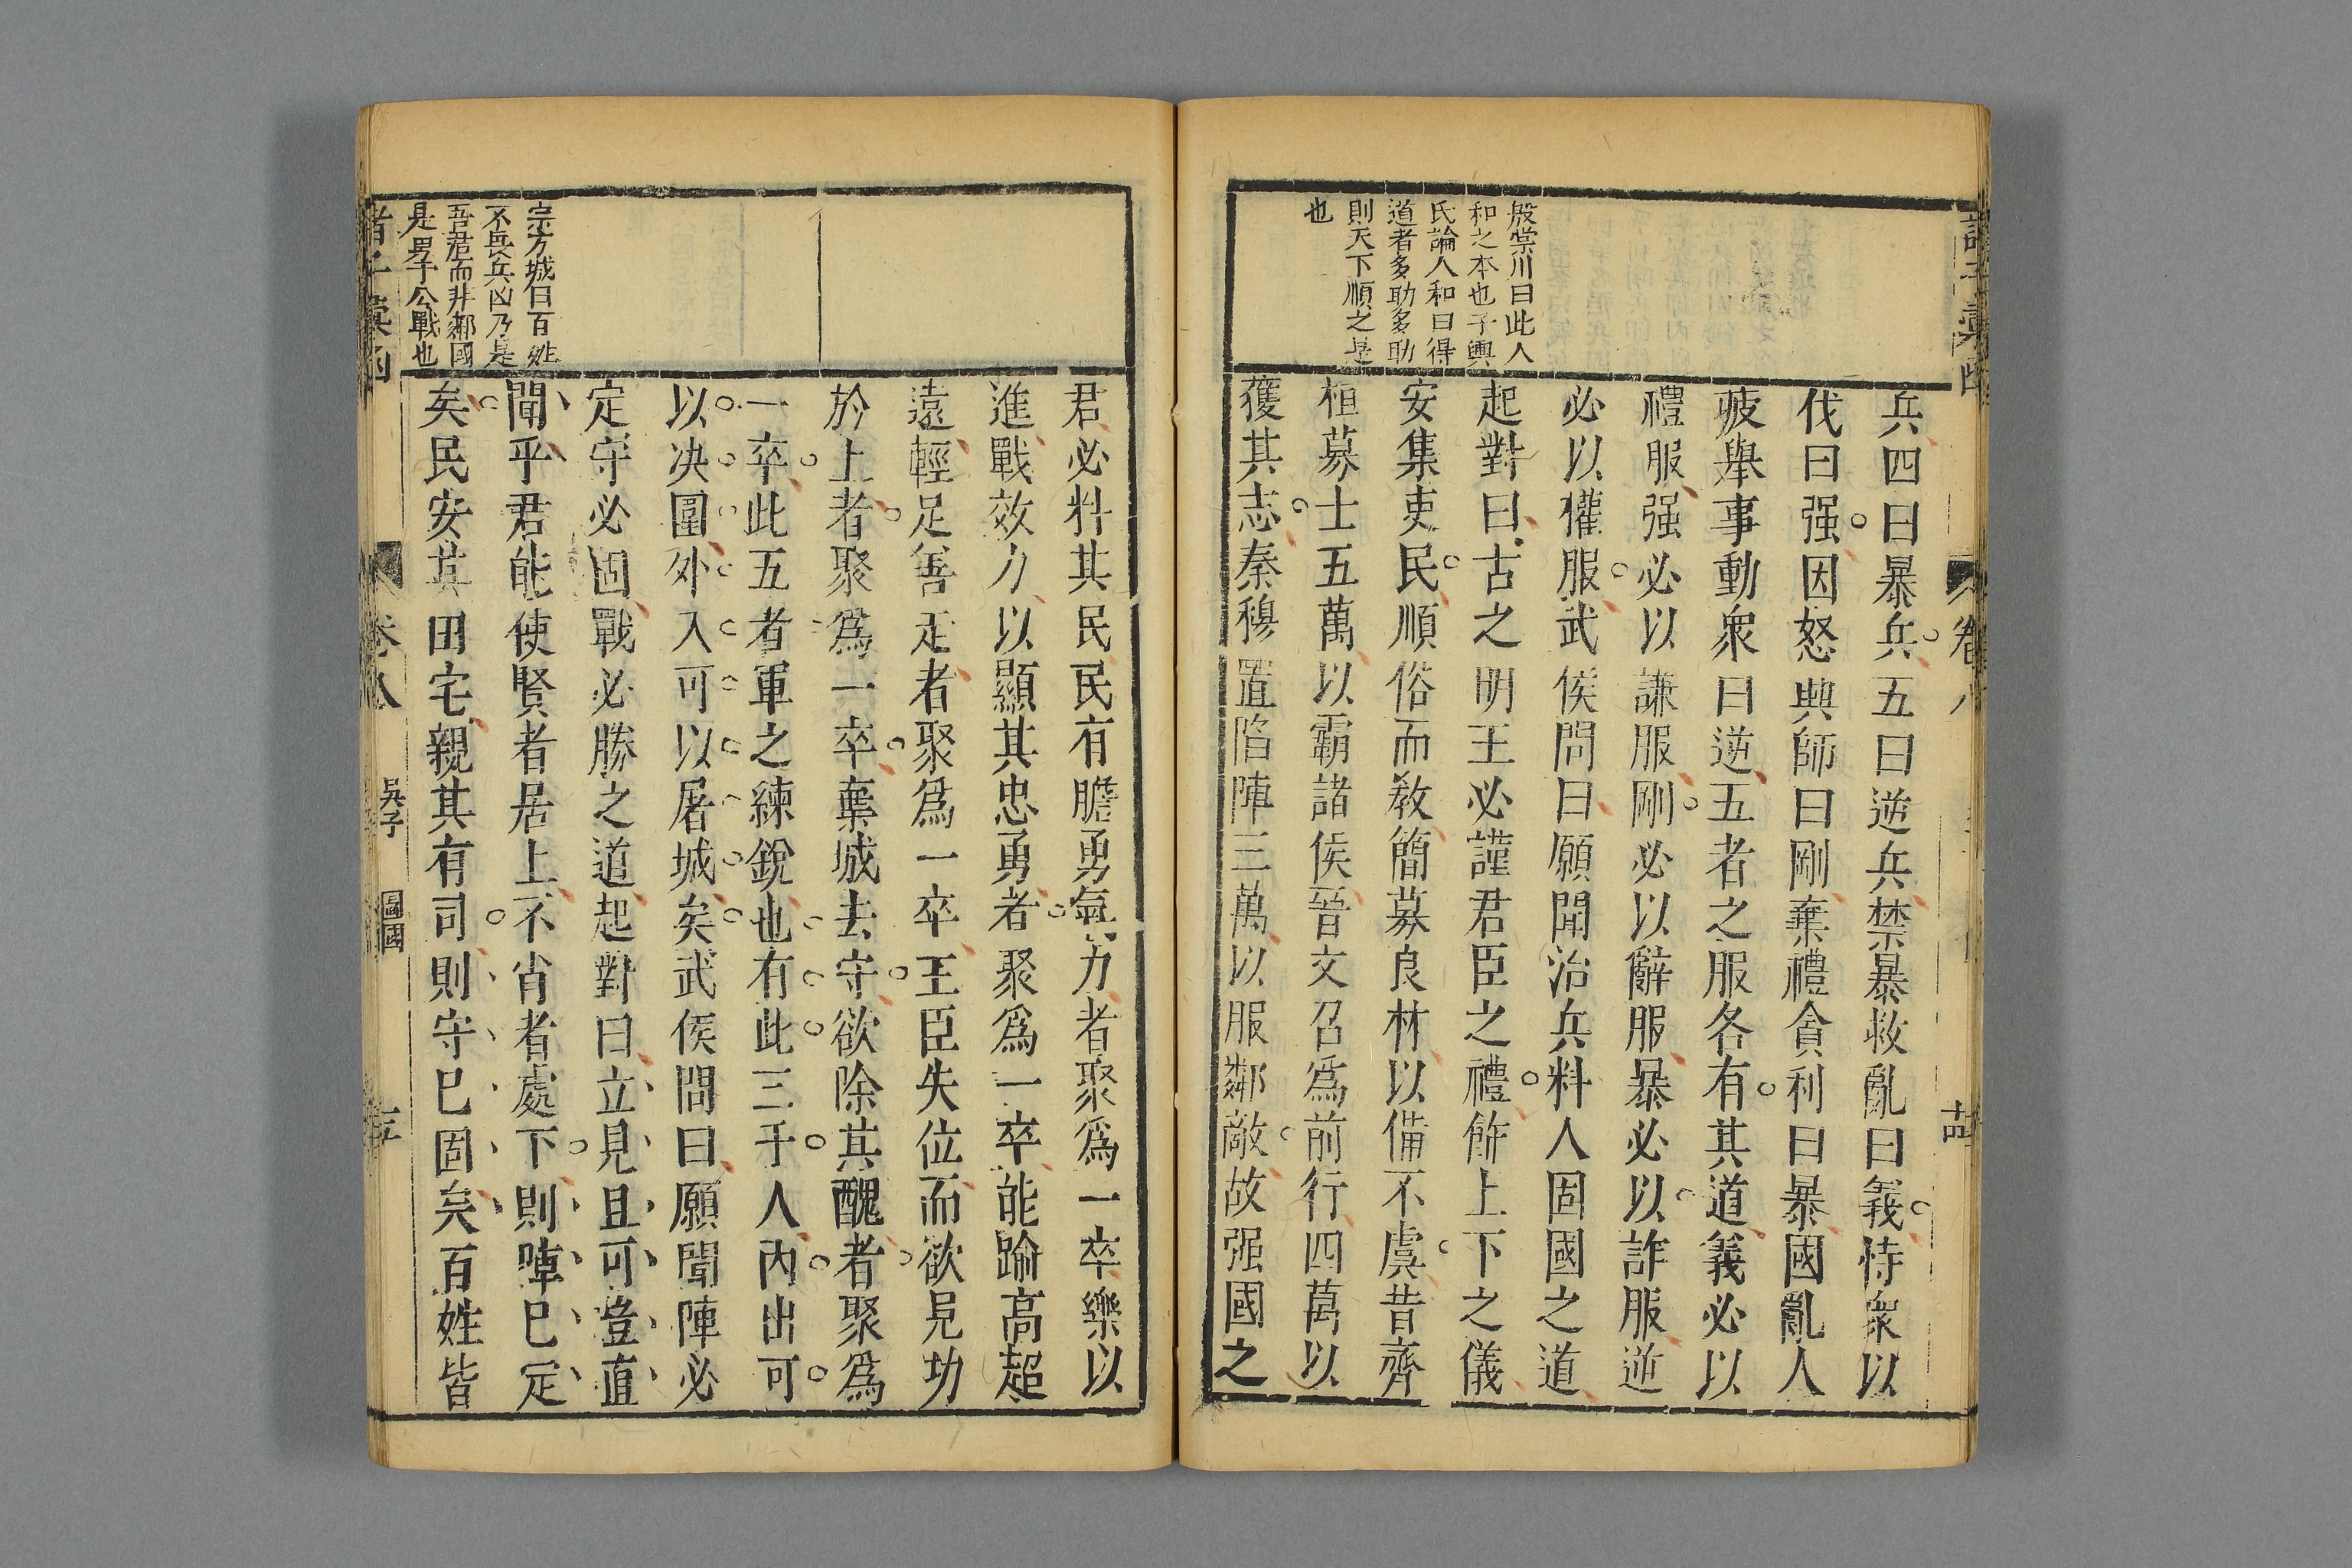 兵四曰暴兵五曰逆兵禁暴救亂曰義恃衆以
伐曰强因怒興師曰剛棄禮貪利曰暴國亂人
疲舉事動衆曰逆五者之服各有其道義必以
禮服强必以謙服剛必以辭服暴必以詐服逆
必以權服武侯問曰願聞治兵料人固國之道
起對曰古之明王必謹君臣之禮餙上下之儀
安集吏民順俗而敎簡募良材以備不虞昔齊
桓募士五萬以霸諸侯晉文召爲前行四萬以
獲其志秦穆置陷陣三萬以服鄰敵故强國之
殷棠川曰此人
和之本也子輿
氏論人和曰得
道者多助多助
則天下順之是
也
卷八
君必料其民民有膽勇氣力者聚爲一卒樂以
進戰效力以顯其忠勇者聚爲一卒能踰高超
遠輕足善走者聚爲一卒王臣失位而欲見功
於上者聚爲一卒棄城去守欲除其醜者聚爲
一卒此五者軍之練銳也有此三千人內出可
以决圍外入可以屠城矣武侯問曰願聞陣必
定守必固戰必勝之道起對曰立見且可豈直
聞乎君能使賢者居上不肖者處下則陣已定
矣民安其田宅親其有司則守已固矣百姓皆
宗方城曰百姓
不長兵凶乃是
吾君而非鄰國
是男子公戰也
諸子彙函
卷八
吳子
圖國